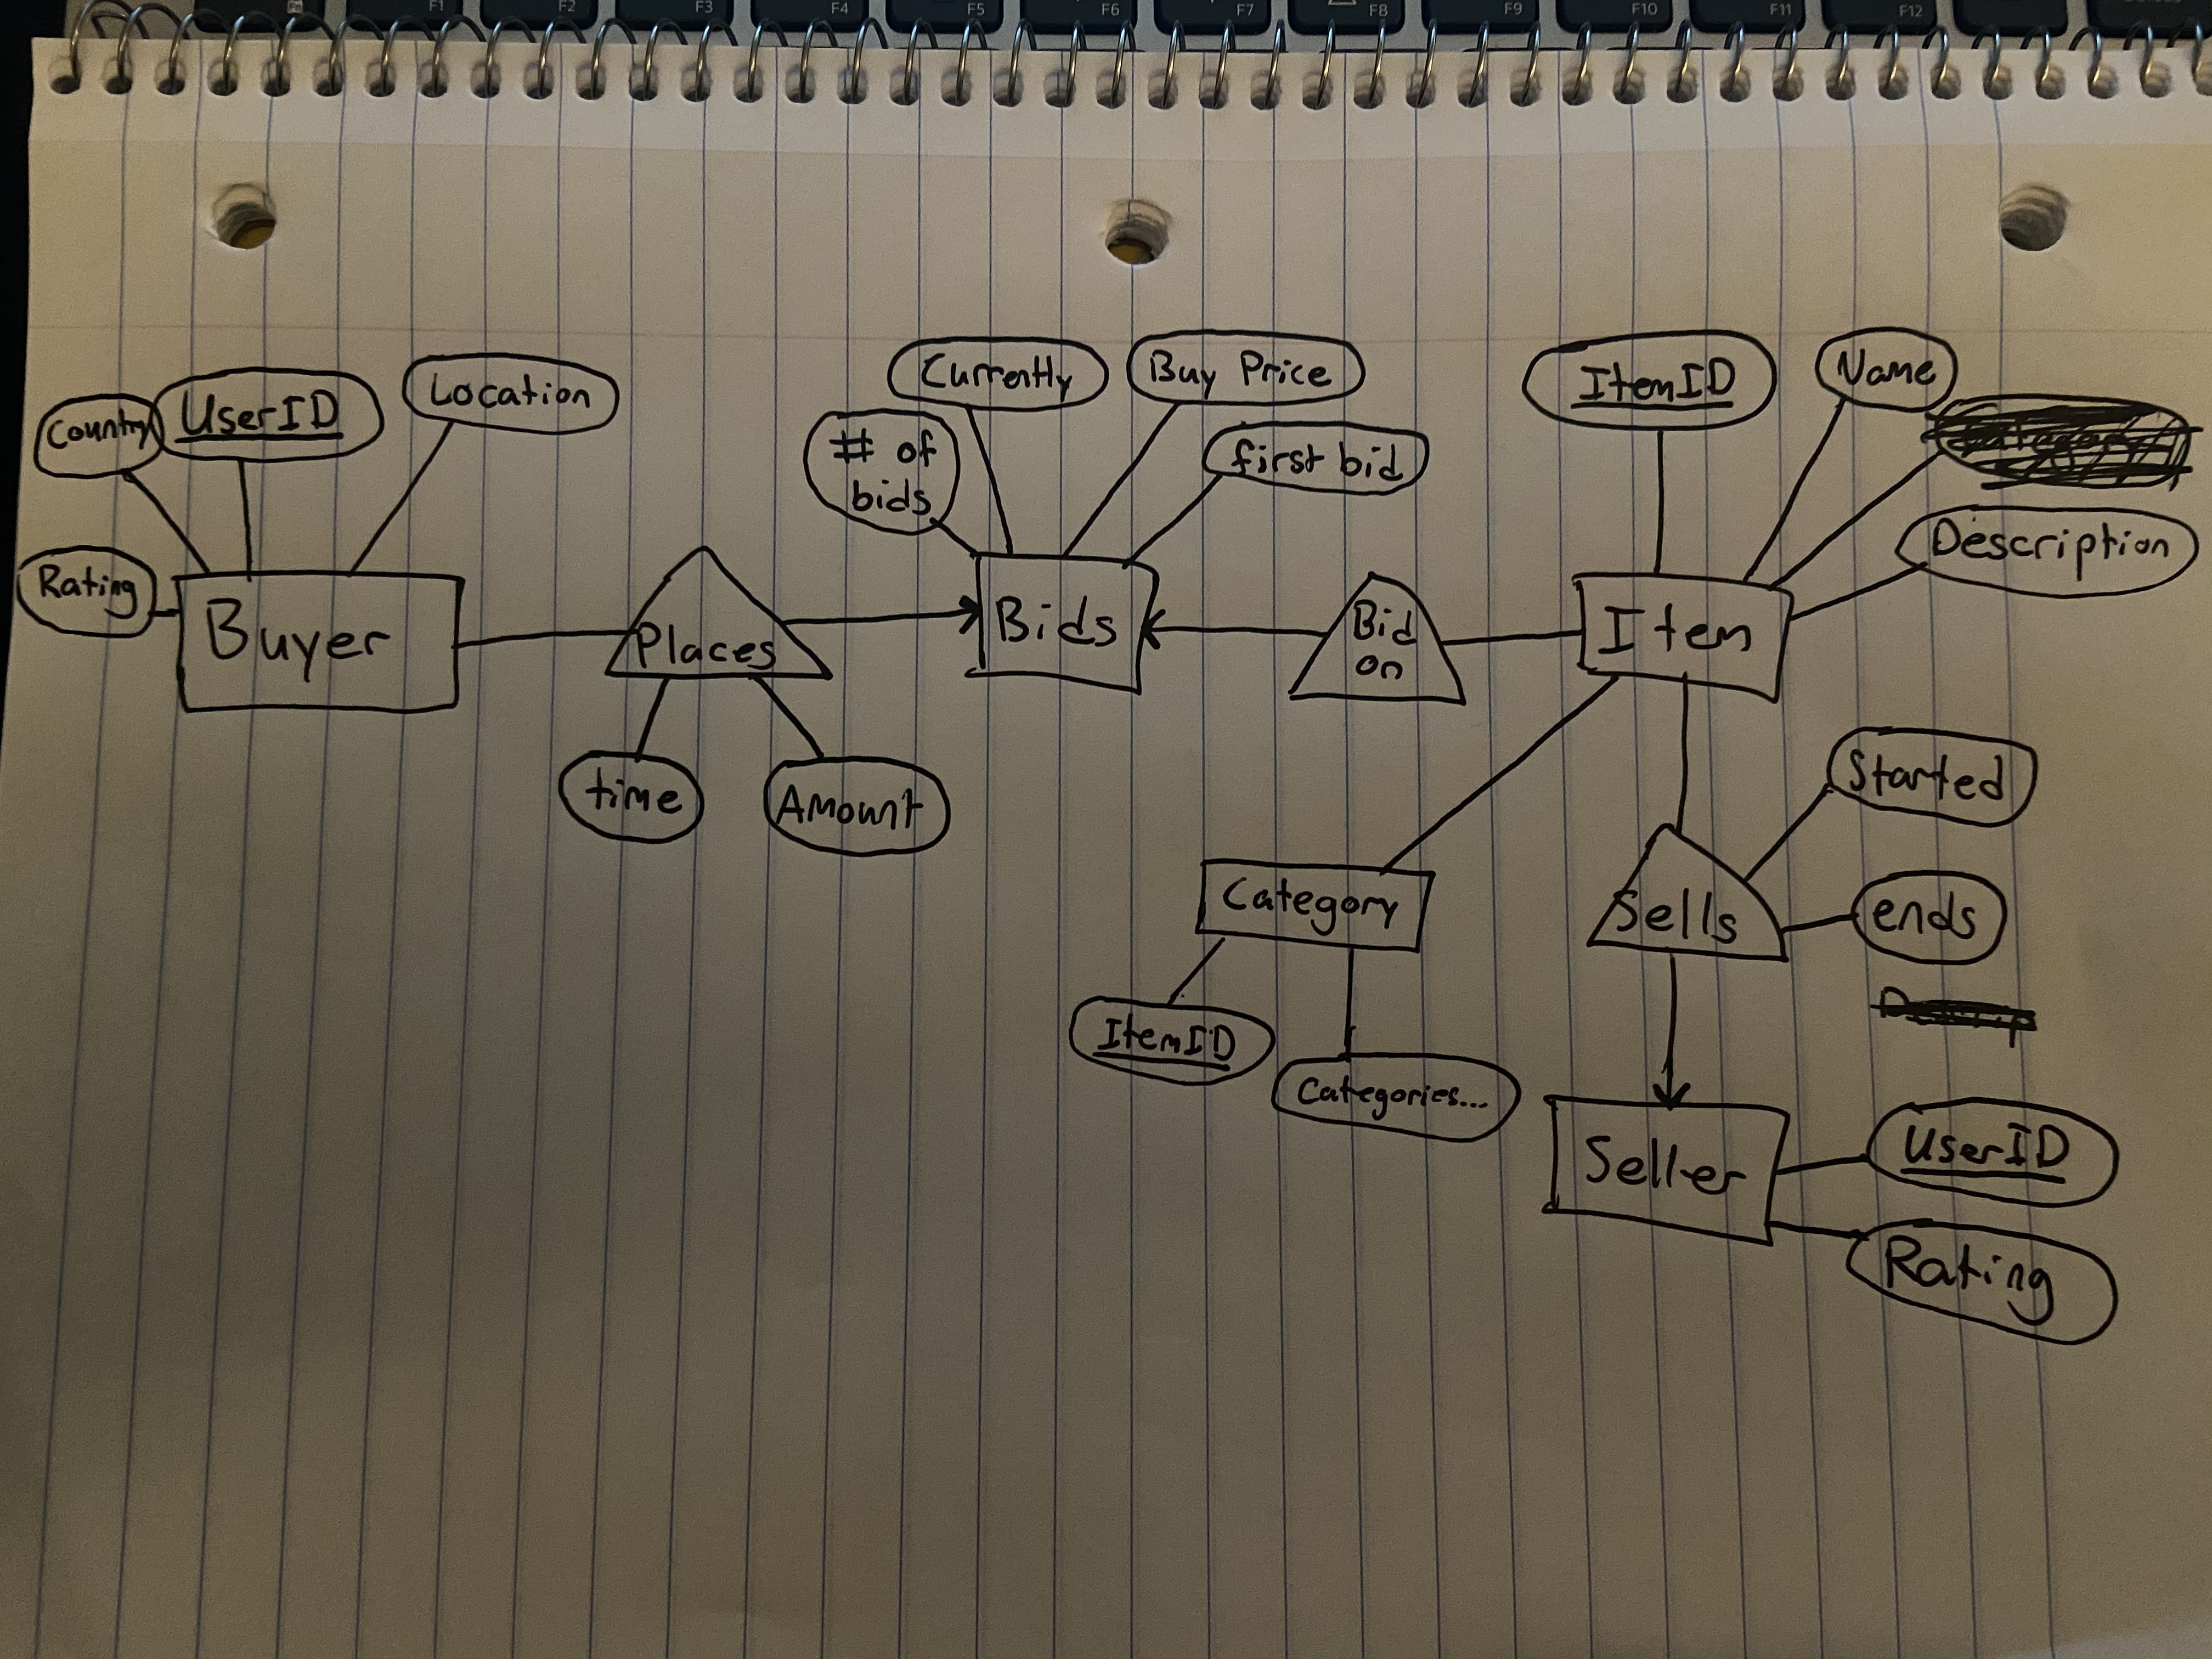 F1
F2
F3
F4
F5
F6
F7
F8
F9
F10
F11
F12
Country
UserID
Location
Rating
Buyer
Places
time
Amount
Currently
Buy Price
# of
bids
first bid
Bids
Bid
on
ItemID
Name
Description
Item
Category
ItemID
Categories...
Sells
Started
ends
Seller
UserID
Rating